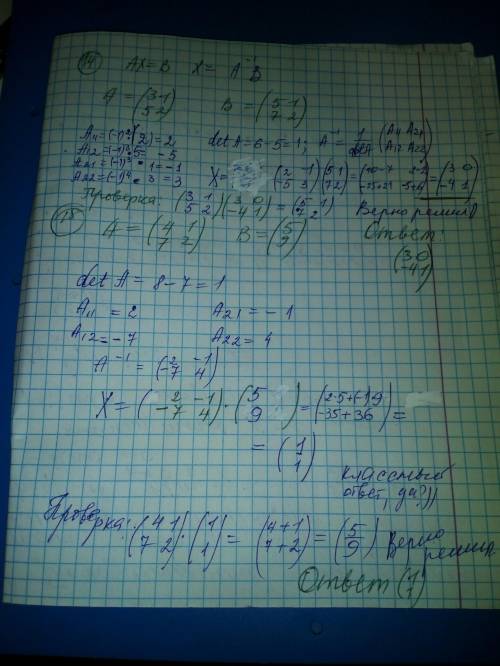 14 AX = B X = A⁻¹B
A = (3 1; 5 2) B = (5 1; 7 2)
A₁₁ = (-1)²·(2) = 2 det A = 6 - 5 = 1; A⁻¹ = 1/det A (A₁₁ A₂₁; A₁₂ A₂₂)
A₁₂ = (-1)³·5 = -5
A₂₁ = (-1)³·1 = -1 X = (2 -1; -5 3)(5 1; 7 2) = (10-7 2-2; -25+21 -5+6) = (3 0; -4 1)
A₂₂ = (-1)⁴·3 = 3
Проверка: (3 1; 5 2)(3 0; -4 1) = (5 1; 7 2) Верно решила
Ответ: (3 0; -4 1)
15 A = (4 1; 7 2) B = (5; 9)
det A = 8 - 7 = 1
A₁₁ = 2 A₂₁ = -1
A₁₂ = -7 A₂₂ = 4
A⁻¹ = (2 -1; -7 4)
X = (2 -1; -7 4) · (5; 9) = (2·5+(-1)9; -35+36) =
= (1; 1)
классный
ответ, да?))
Проверка: (4 1; 7 2)·(1; 1) = (4+1; 7+2) = (5; 9) Верно
решила
Ответ (1; 1)